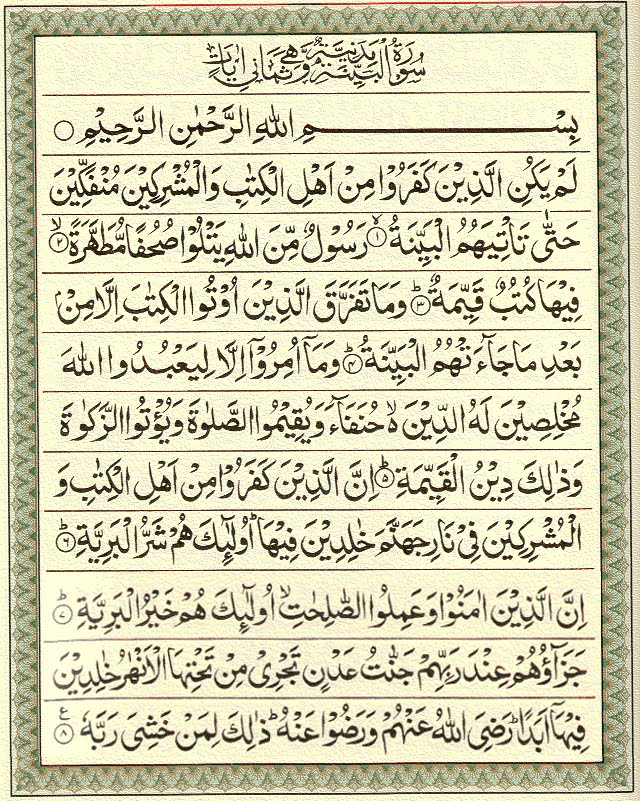 سُوْرَةُ الْبَيِّنَةِ مَدَنِيَّةٌ وَّهِيَ ثَمَانِيَ اٰيَاتٍ
بِسْمِ اللهِ الرَّحْمٰنِ الرَّحِيْمِ ○
لَمْ يَكُنِ الَّذِيْنَ كَفَرُوْا مِنْ اَهْلِ الْكِتٰبِ وَالْمُشْرِكِيْنَ مُنْفَكِّيْنَ
حَتّٰى تَاْتِيَهُمُ الْبَيِّنَةُ ۙ﴿۱﴾ رَسُوْلٌ مِّنَ اللهِ يَتْلُوْا صُحُفًا مُّطَهَّرَةً ۙ﴿۲﴾
فِيْهَا كُتُبٌ قَيِّمَةٌ ؕ﴿۳﴾ وَمَا تَفَرَّقَ الَّذِيْنَ اُوْتُوا الْكِتٰبَ اِلَّا مِنْۢ
بَعْدِ مَا جَآءَتْهُمُ الْبَيِّنَةُ ؕ﴿۴﴾ وَمَاۤ اُمِرُوْۤا اِلَّا لِيَعْبُدُوا اللهَ
مُخْلِصِيْنَ لَهُ الدِّيْنَ ۙ۬ حُنَفَآءَ وَيُقِيْمُوا الصَّلٰوةَ وَيُؤْتُوا الزَّكٰوةَ
وَذٰلِكَ دِيْنُ الْقَيِّمَةِ ؕ﴿۵﴾ اِنَّ الَّذِيْنَ كَفَرُوْا مِنْ اَهْلِ الْكِتٰبِ وَ
الْمُشْرِكِيْنَ فِيْ نَارِ جَهَنَّمَ خٰلِدِيْنَ فِيْهَا ؕ اُولٰٓئِكَ هُمْ شَرُّ الْبَرِيَّةِ ؕ﴿۶﴾
اِنَّ الَّذِيْنَ اٰمَنُوْا وَعَمِلُوا الصّٰلِحٰتِ ۙ اُولٰٓئِكَ هُمْ خَيْرُ الْبَرِيَّةِ ؕ﴿۷﴾
جَزَآؤُهُمْ عِنْدَ رَبِّهِمْ جَنّٰتُ عَدْنٍ تَجْرِيْ مِنْ تَحْتِهَا الْاَنْهٰرُ خٰلِدِيْنَ
فِيْهَاۤ اَبَدًا ؕ رَضِيَ اللهُ عَنْهُمْ وَرَضُوْا عَنْهُ ؕ ذٰلِكَ لِمَنْ خَشِيَ رَبَّهٗ ﴿۸﴾ ع